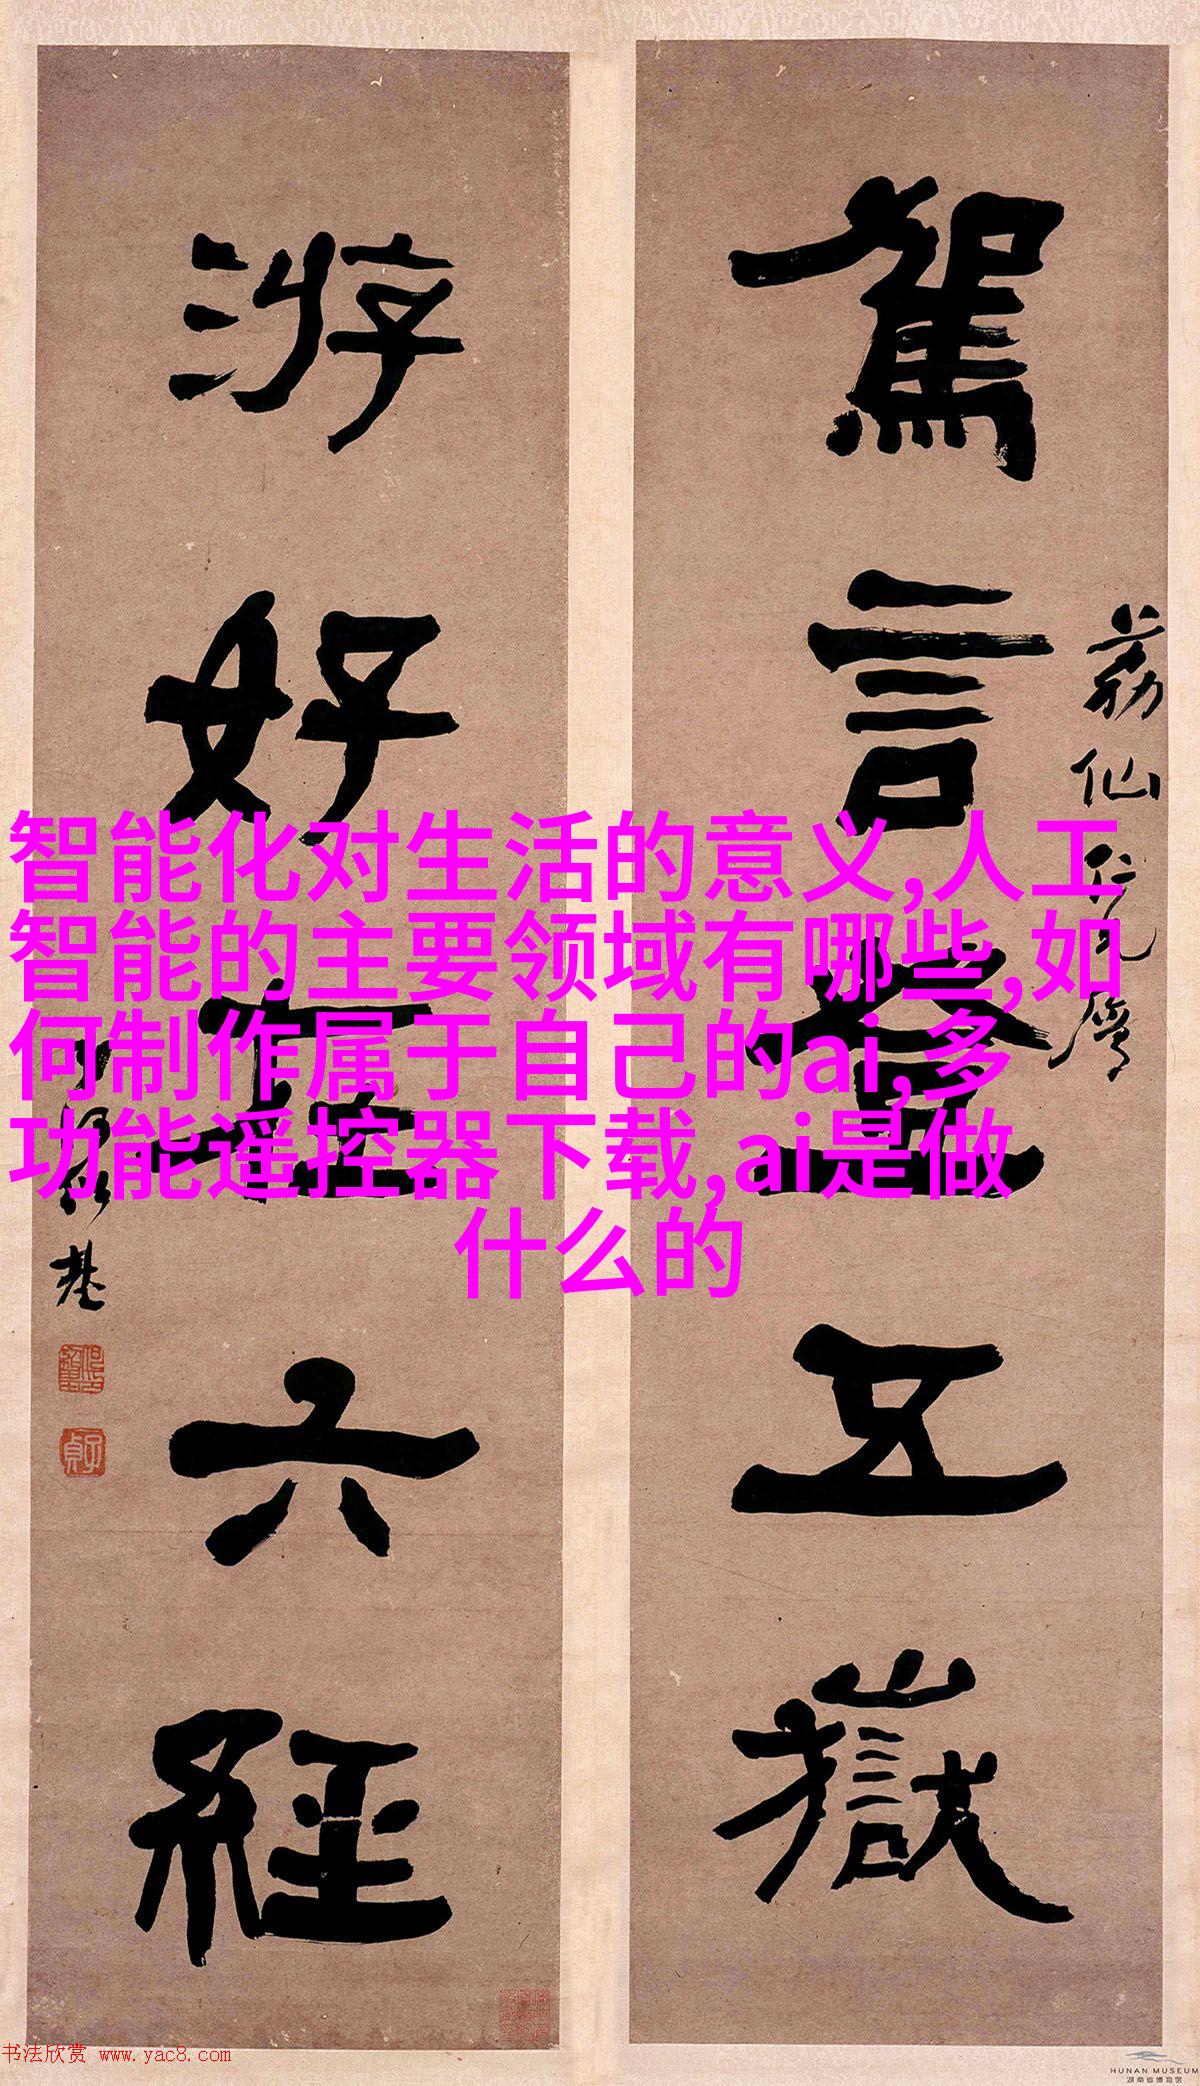 駕言登五嶽
荔仙仁兄
游好在六經
紹基
子貞
智能化对生活的意义,人工
智能的主要领域有哪些,如
何制作属于自己的ai,多
功能遥控器下载,ai是做
什么的
书法欣赏 www.yac8.com
HUNAN MUSEUM
湖南省博物館